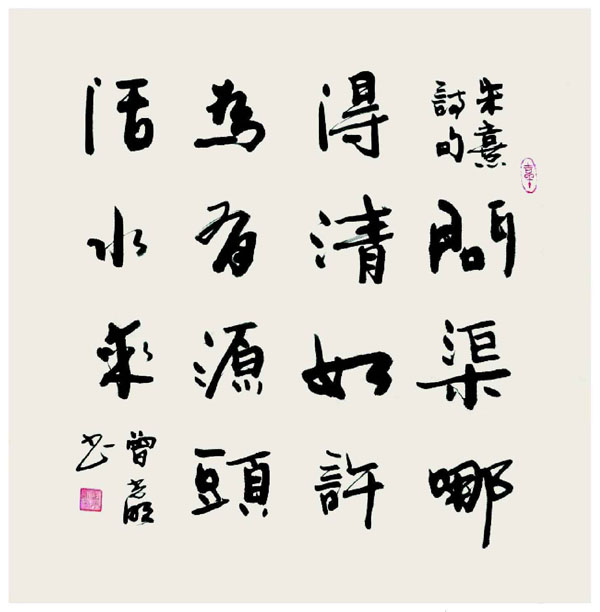 朱熹
詩句
問渠哪
得清如許
為有源頭
活水來
曾
书